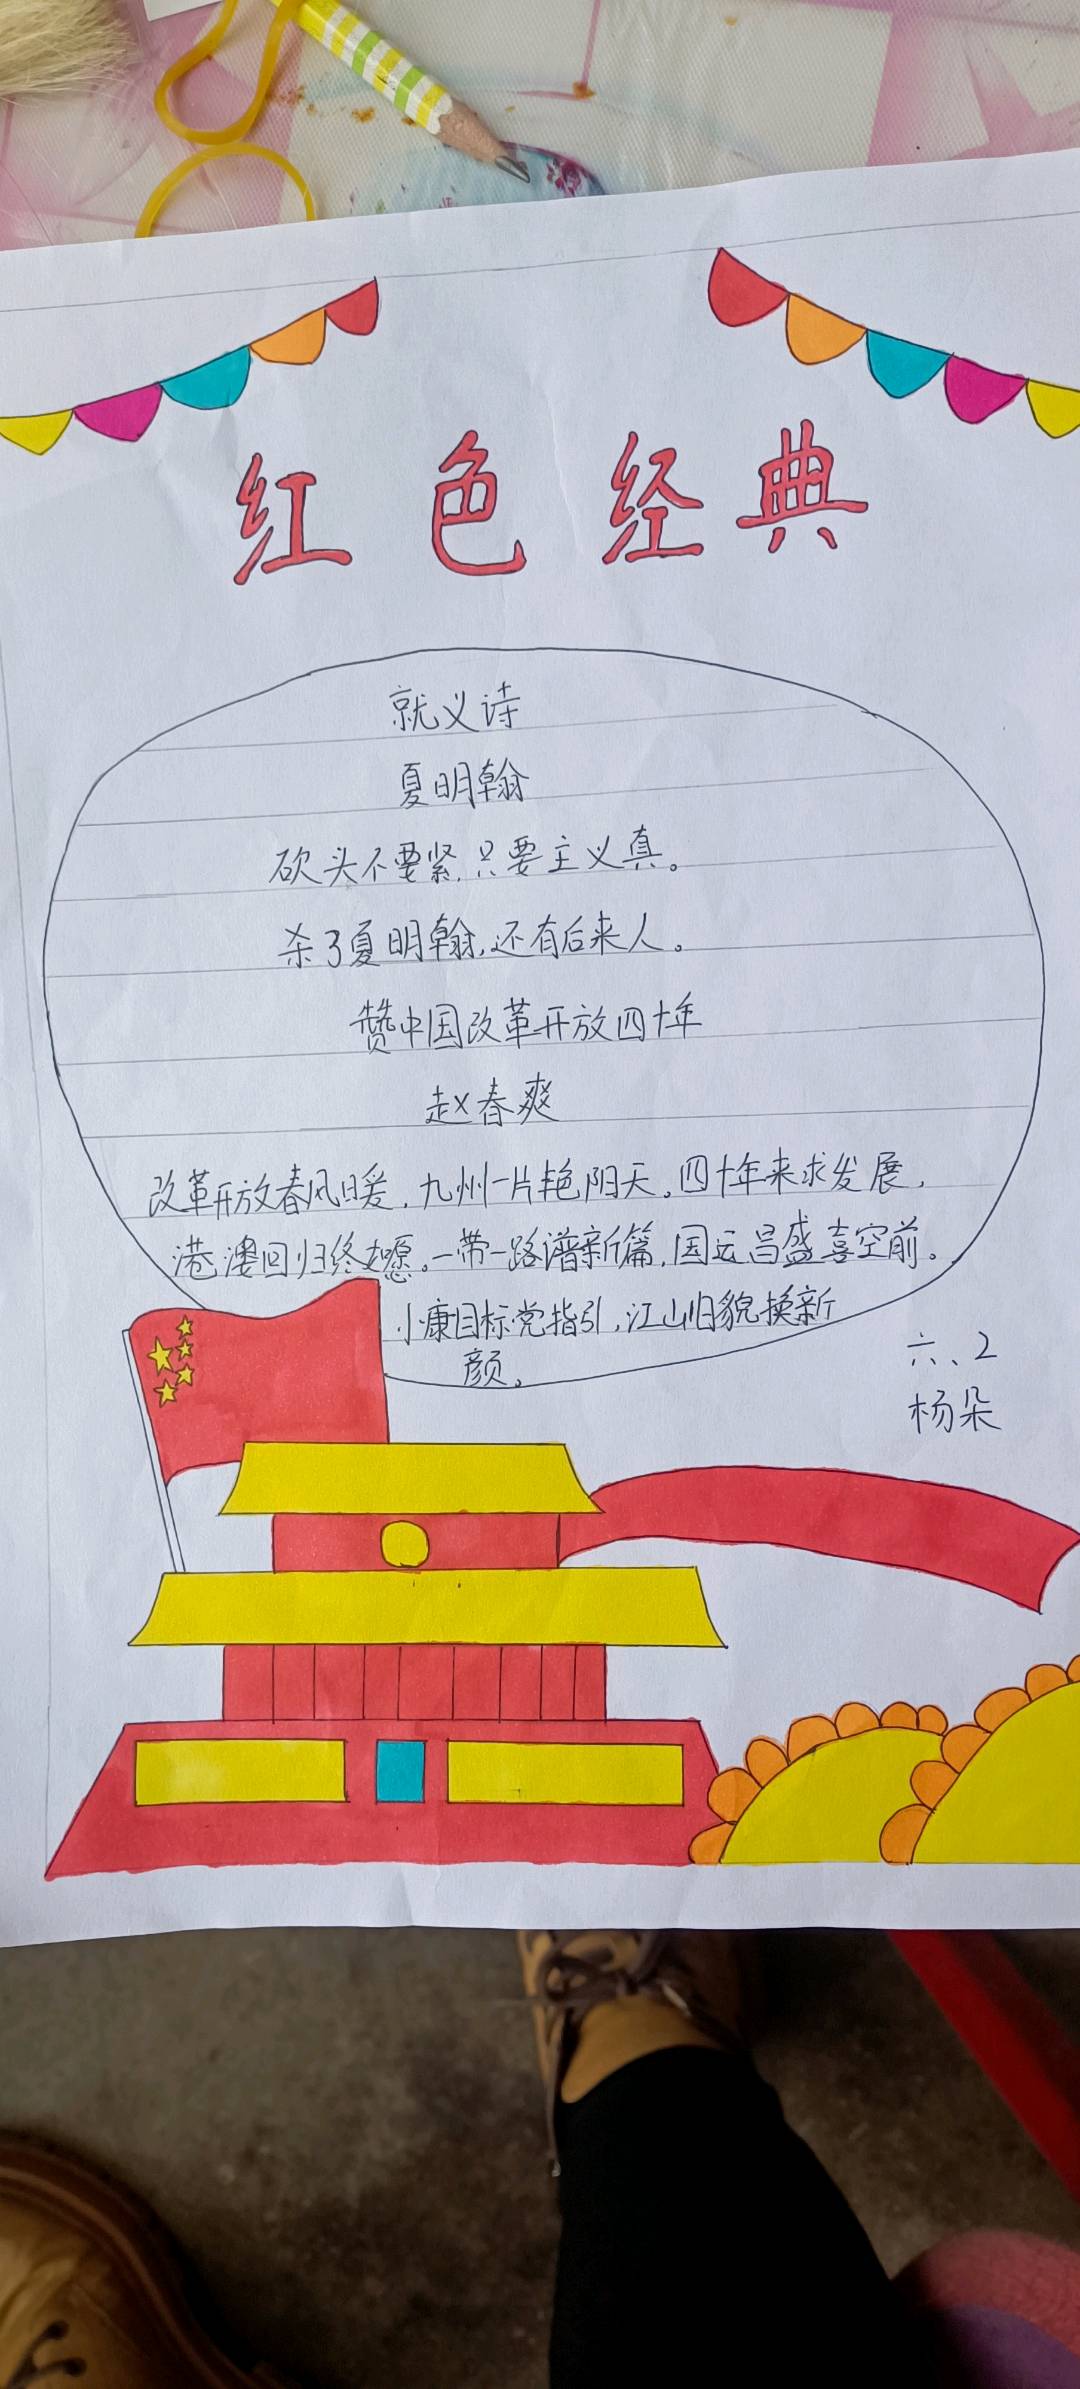 红色经典
就义诗
夏明翰
砍头不要紧,只要主义真。
杀了夏明翰,还有后来人。
赞中国改革开放四十年
赵春爽
改革开放春风日暖,九州一片艳阳天。四十年来求发展,
港澳回归终如愿。一带一路谱新篇,国运昌盛喜空前。
小康目标党指引,江山旧貌换新
颜。
六、2
杨朵